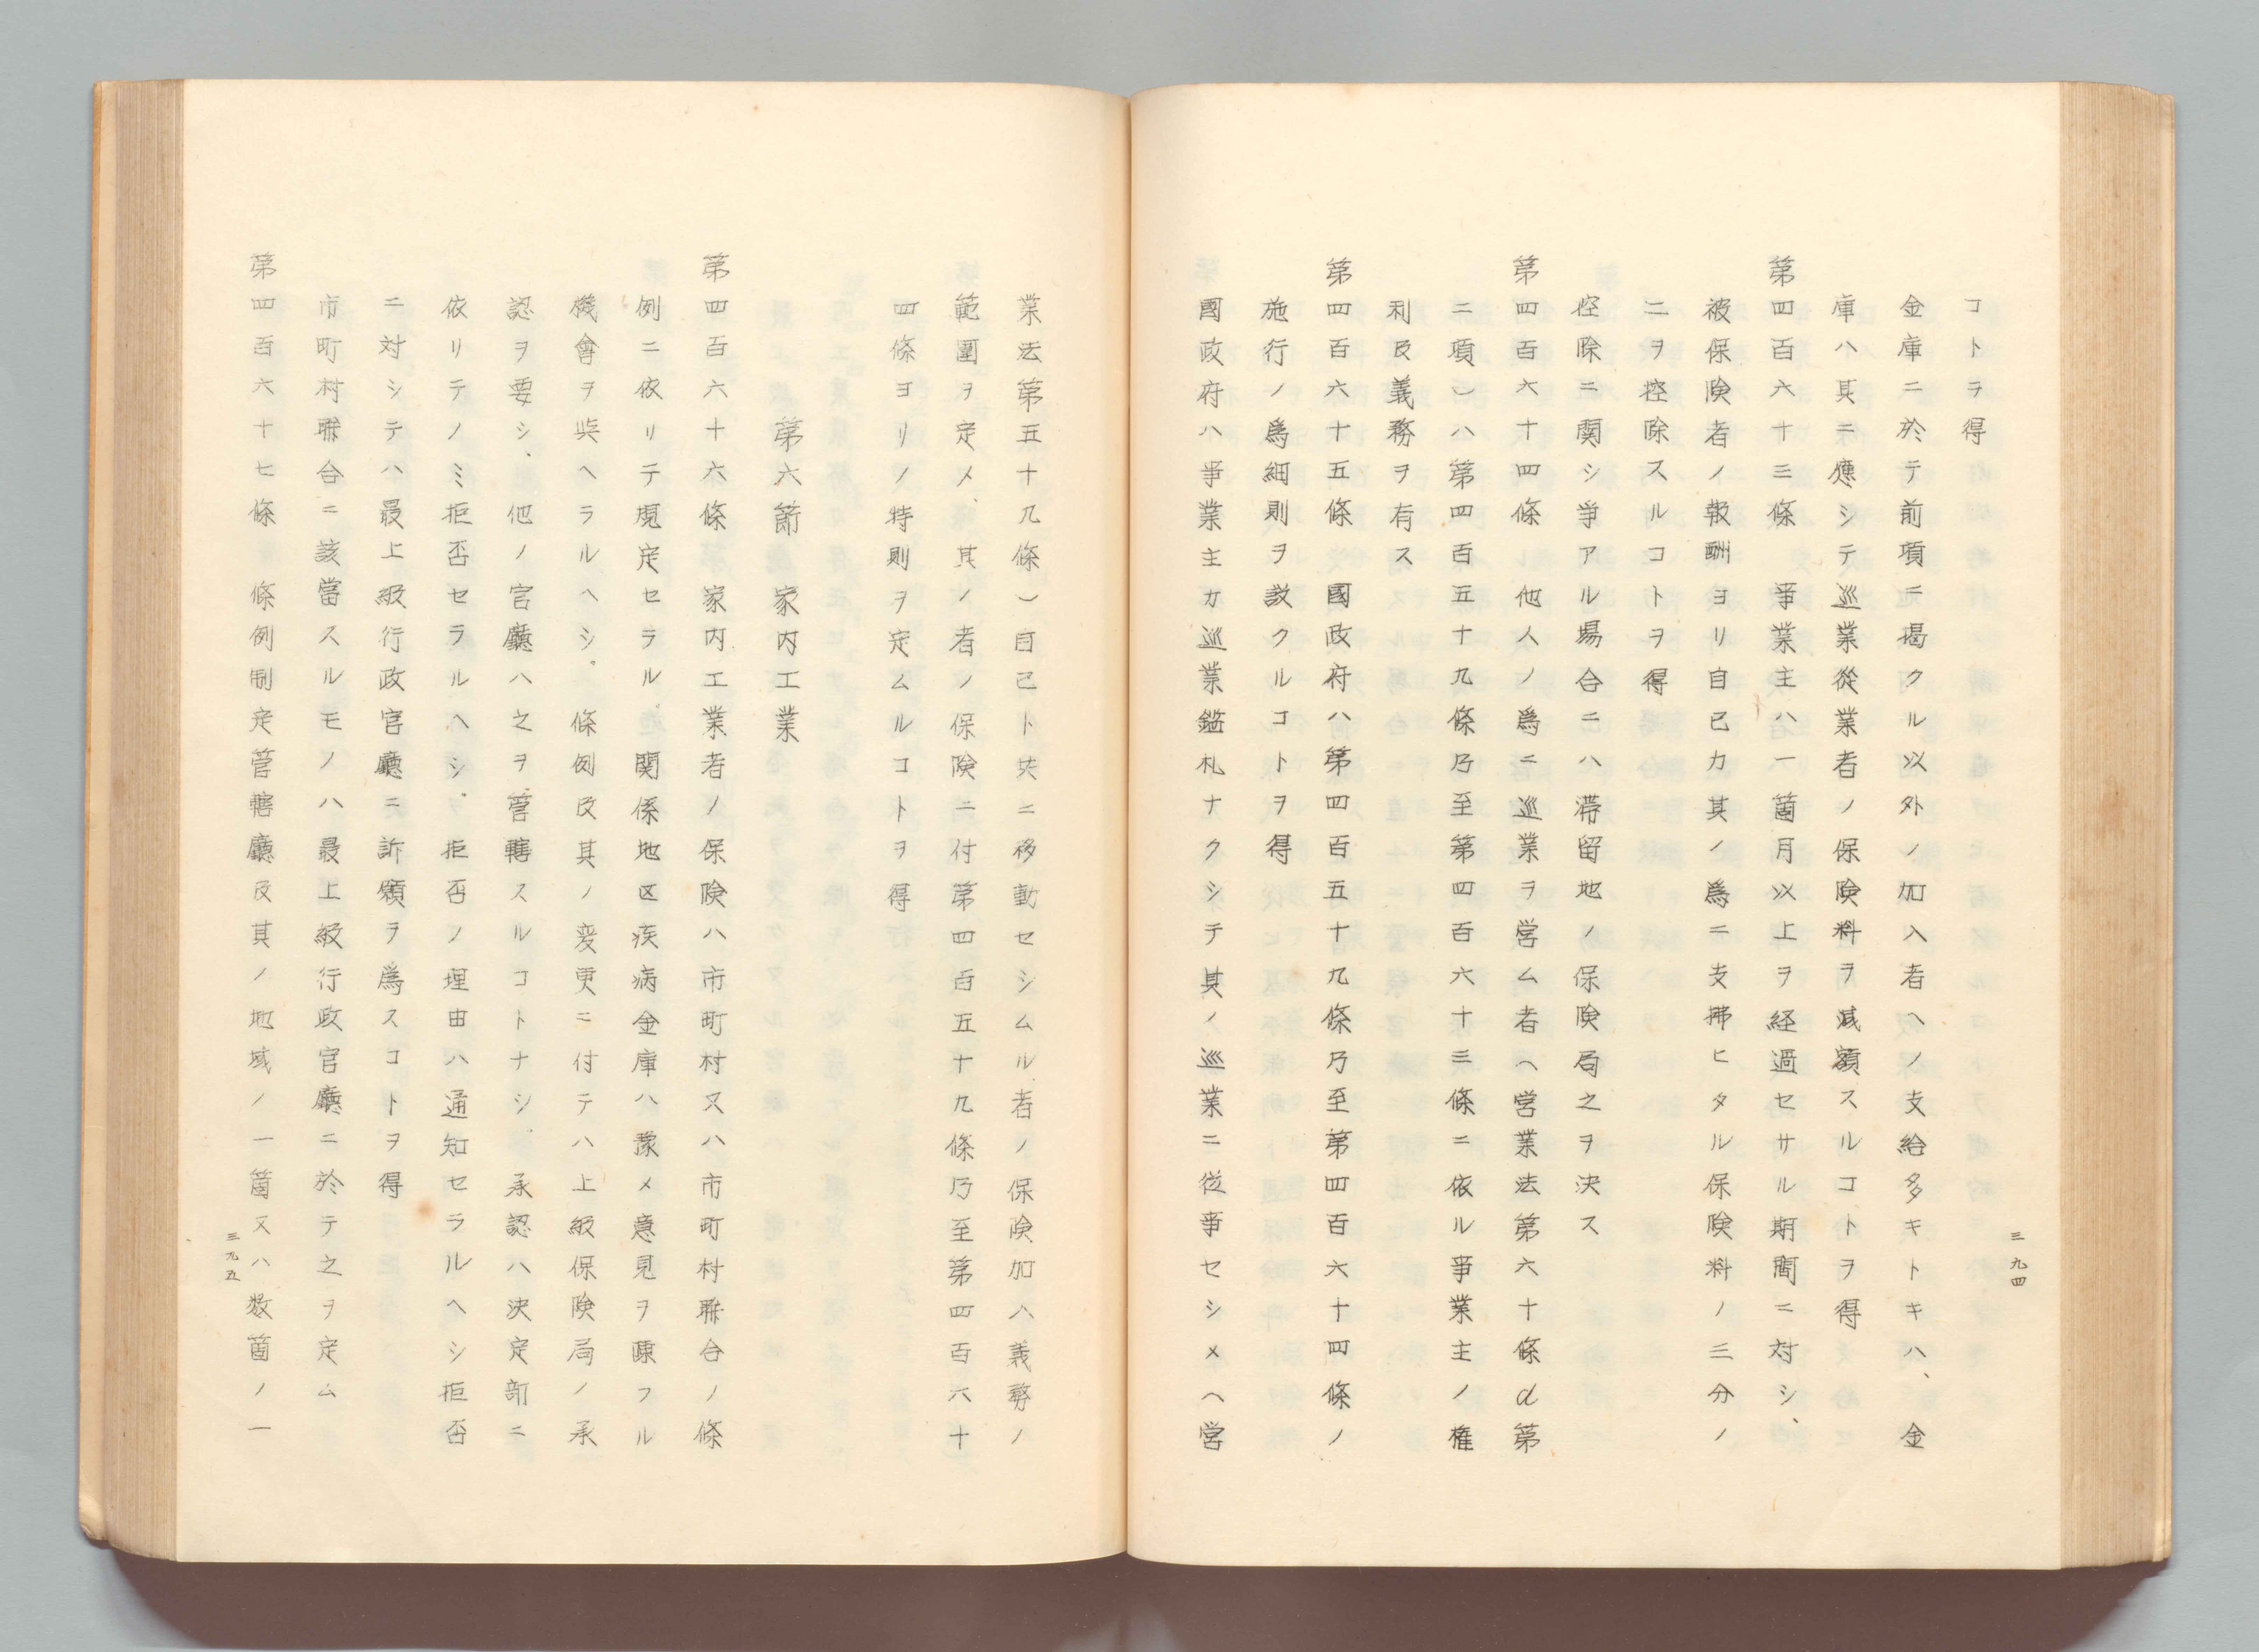 コトヲ得
金庫ニ於テ前項ニ掲クル以外ノ加入者ヘノ支給多キトキハ、金
庫ハ其ニ應シテ巡業從業者ノ保険料ヲ減額スルコトヲ得
第四百六十三條　事業主ハ一箇月以上ヲ経過セサル期間ニ対シ、
被保険者ノ報酬ヨリ自己カ其ノ為ニ支拂ヒタル保険料ノ三分ノ
二ヲ控除スルコトヲ得
控除ニ関シ争アル場合ニハ滞留地ノ保険局之ヲ決ス
第四百六十四條　他人ノ爲ニ巡業ヲ営ム者（営業法第六十條d第
二項）ハ第四百五十九條乃至第四百六十三條ニ依ル事業主ノ権
利及義務ヲ有ス
第四百六十五條　國政府ハ第四百五十九條乃至第四百六十四條ノ
施行ノ爲細則ヲ設クルコトヲ得
國政府ハ事業主カ巡業鑑札ナクシテ其ノ巡業ニ従事セシメ（営
三九四
業法第五十九條）自己ト共ニ移動セシムル者ノ保険加入義務ノ
範圍ヲ定メ、其ノ者ノ保険ニ付第四百五十九條乃至第四百六十
四條ヨリノ特則ヲ定ムルコトヲ得
第六節　家内工業
第四百六十六條　家内工業者ノ保険ハ市町村又ハ市町村聯合ノ條
例ニ依リテ規定セラル、関係地区疾病金庫ハ豫メ意見ヲ陳フル
機會ヲ与ヘラルヘシ。條例及其ノ変更ニ付テハ上級保険局ノ承
認ヲ要シ、他ノ官廳ハ之ヲ管轄スルコトナシ、承認ハ決定部ニ
依リテノミ拒否セラルヘシ、拒否ノ理由ハ通知セラルヘシ拒否
ニ対シテハ最上級行政官廳ニ訴願ヲ爲スコトヲ得
市町村聯合ニ該當スルモノハ最上級行政官廳ニ於テ之ヲ定ム
第四百六十七條　條例制定管轄廳及其ノ地域ノ一箇又ハ数箇ノ一
三九五